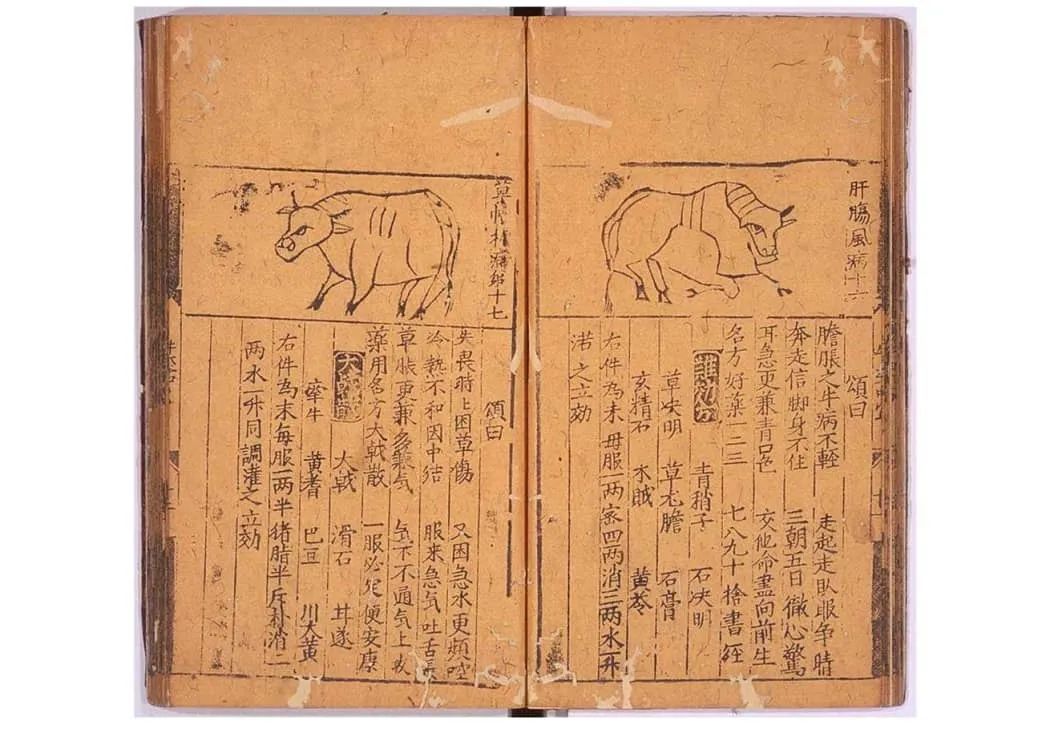 肝膓風病十六
頌曰
膽脹之牛病不輕 走起走臥眼爭時
奔走信脚身不住 三朝五日徹心驚
耳急更兼青口色 交他命盡向前生
名方好藥一二三 七八九十捨書經
青葙子 石决明
草决明 草尨膽 石膏
玄精石 水賊 黄芩
右件為末毎服一兩宻四兩消三兩水一升
渃之立効
草 病第十七
頌曰
失畏時上困草傷 又困急水更頻
冷熱不和因中结 服来急气吐舌長
草脹更兼多 气 气下不通气上
藥用名方大戟散 一服必 便安康
大戟散
大戟 滑石 甘遂
牽牛 黄耆 巴豆 川大黄
右件為末毎服一兩半猪脂半斤朴消二
两水一升同調灌之立効